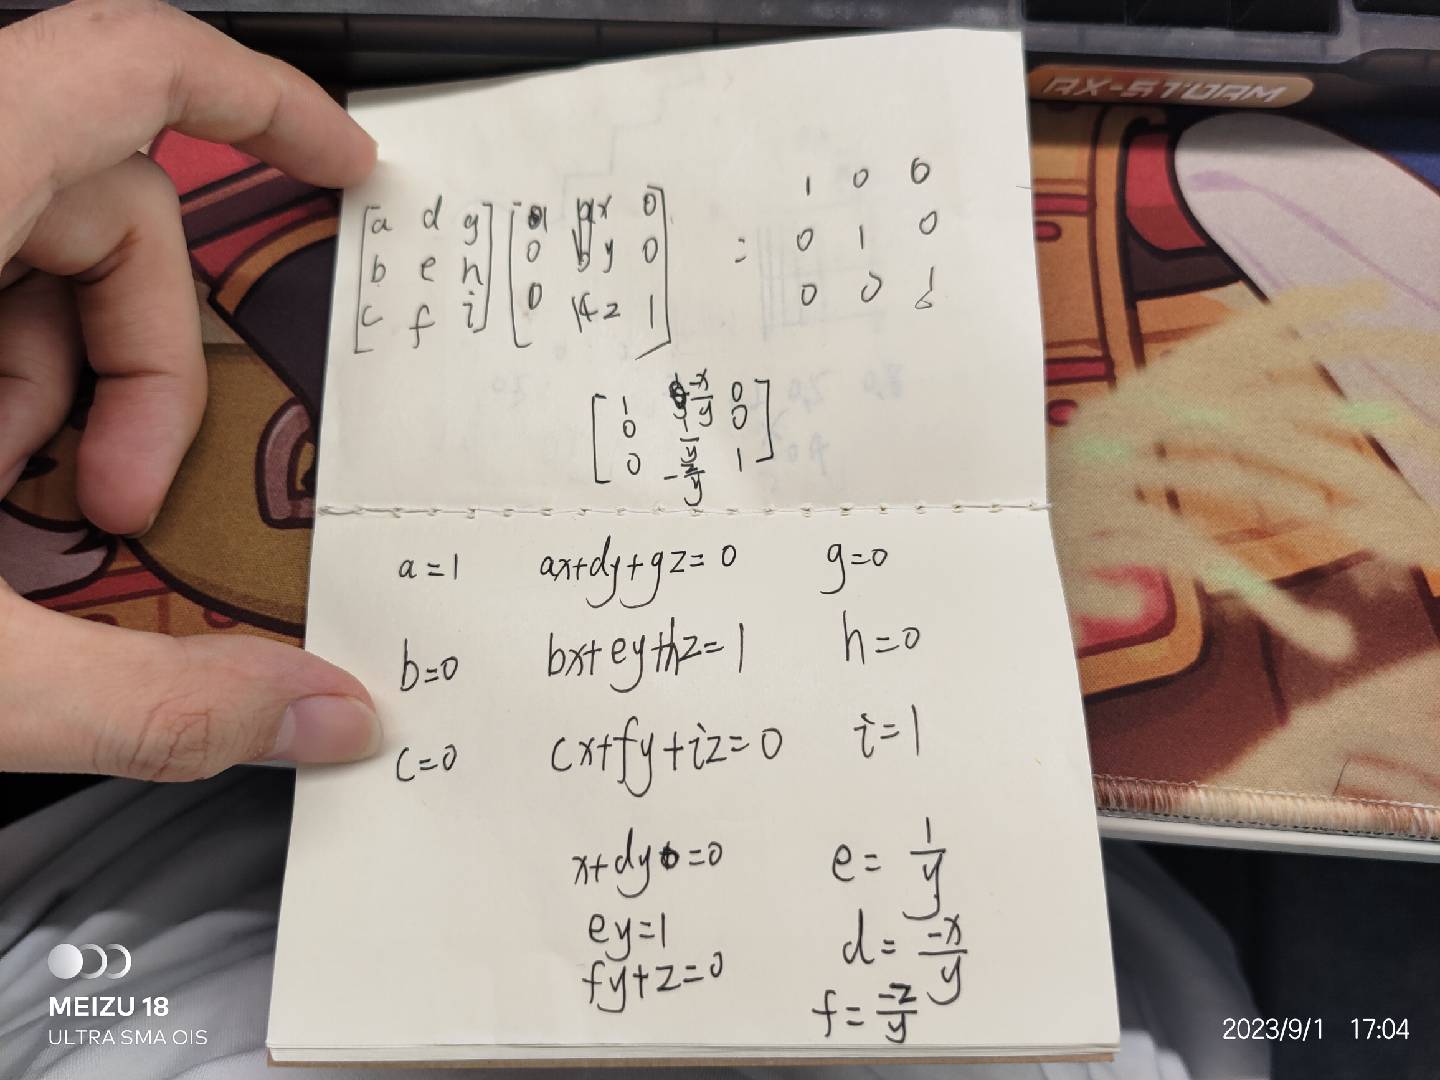 AX-STORM
[a d g] [1 x 0] = 1 0 0
[b e h] [0 y 0] 0 1 0
[c f i] [0 z 1] 0 0 1
[1 -x/y 0]
[0 1/y 0]
[0 -z/y 1]
a=1 ax+dy+gz=0 g=0
b=0 bx+ey+hz=1 h=0
c=0 cx+fy+iz=0 i=1
x+dy=0 e=1/y
ey=1 d=-x/y
fy+z=0 f=-z/y
MEIZU 18
ULTRA SMA OIS
2023/9/1 17:04